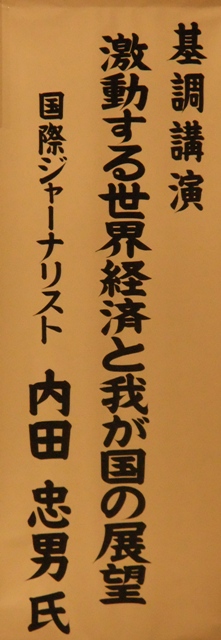 基調講演
激動する世界経済と我が国の展望
国際ジャーナリスト 内田 忠男 氏